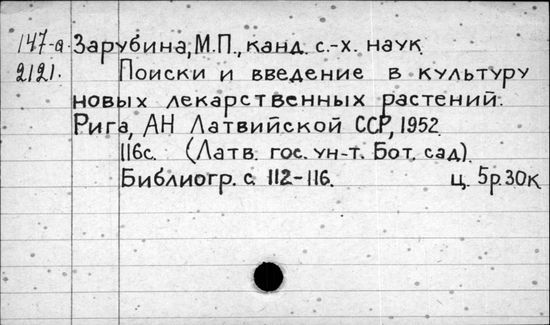 147-а Зарубина, М.П., канд. с.-х. наук
2121. Поиски и введение в культуру
новых лекарственных растений.
Рига, АН Латвийской ССР, 1952.
116с. (Латв. гос. ун-т. Бот. сад).
Библиогр. с. 112-116. ц. 5р.30к